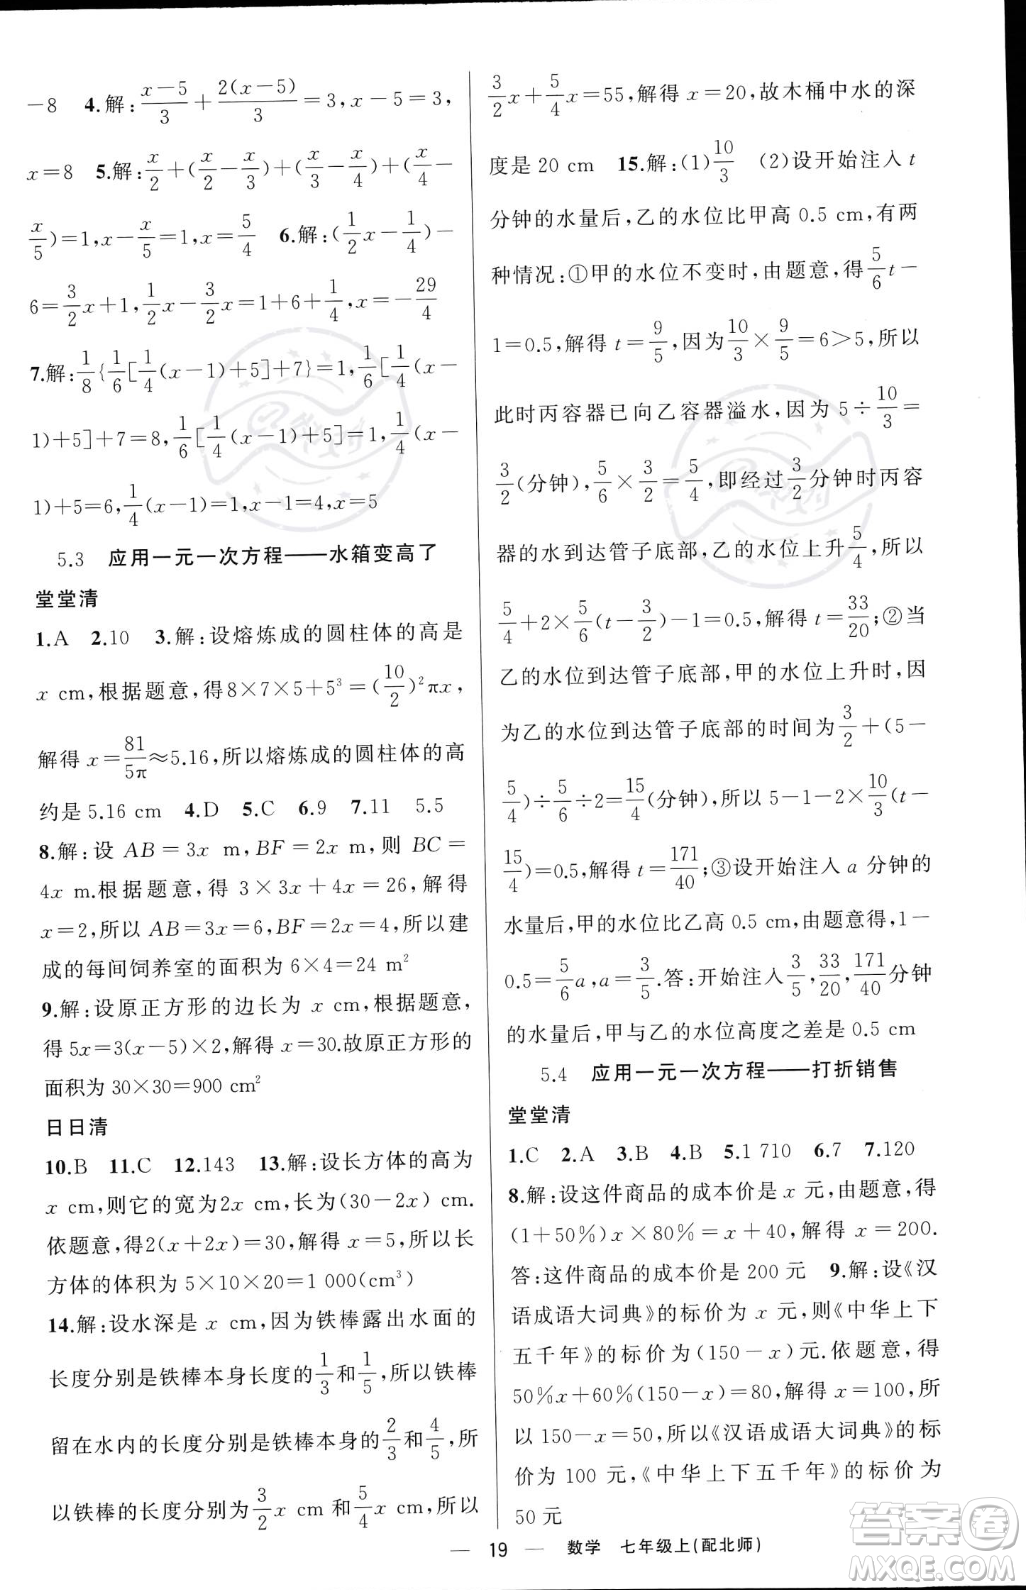 -8 4.解:(x-5)/3+2(x-5)/3=3,x-5=3,
x=8 5.解:x/2+(x/2-x/3)+(x/3-x/4)+(x/4-
x/5)=1,x-x/5=1,x=5/4 6.解:(1/2x-1/4)-
6=3/2x+1,1/2x-3/2x=1+6+1/4,x=-29/4
7.解:1/8{1/6[1/4(x-1)+5]+7}=1,1/6[1/4(x-
1)+5]+7=8,1/6[1/4(x-1)+5]=1,1/4(x-
1)+5=6,1/4(x-1)=1,x=5
5.3 应用一元一次方程——水箱变高了
堂堂清
1.A 2.10 3.解:设熔炼成的圆柱体的高是
x cm,根据题意,得8×7×5+5³=(10/2)²πx,
解得x=81/5π≈5.16,所以熔炼成的圆柱体的高
约是5.16 cm 4.D 5.C 6.9 7.11 5.5
8.解:设 AB=3x m,BF=2x m,则 BC=
4x m.根据题意,得 3×3x+4x=26,解得
x=2,所以 AB=3x=6,BF=2x=4,所以建
成的每间饲养室的面积为 6×4=24 m²
9.解:设原正方形的边长为 x cm,根据题意,
得 5x=3(x-5)×2,解得 x=30.故原正方形的
面积为 30×30=900 cm²
日日清
10.B 11.C 12.143 13.解:设长方体的高为
x cm,则它的宽为2x cm,长为(30-2x) cm.
依题意,得2(x+2x)=30,解得x=5.所以长
方体的体积为 5×10×20=1 000(cm³)
14.解:设水深是 x cm,因为铁棒露出水面的
长度分别是铁棒本身长度的1/3和1/5,所以铁棒
留在水内的长度分别是铁棒本身的2/3和4/5,所
以铁棒的长度分别为3/2x cm和5/4x cm.所以
3/2x+5/4x=55,解得 x=20,故木桶中水的深
度是 20 cm 15.解:(1)10/3 (2)设开始注入 t
分钟的水量后,乙的水位比甲高 0.5 cm,有两
种情况:①甲的水位不变时,由题意,得5/6t-
1=0.5,解得 t=9/5,因为10/3×9/5=6>5,所以
此时丙容器已向乙容器溢水,因为 5÷10/3=
3/2(分钟),5/6×3/2=5/4,即经过3/2分钟时丙容
器的水到达管子底部,乙的水位上升5/4,所以
5/4+2×5/6(t-3/2)-1=0.5,解得 t=33/20;②当
乙的水位到达管子底部,甲的水位上升时,因
为乙的水位到达管子底部的时间为3/2+(5-
5/4)÷5/6÷2=15/4(分钟),所以 5-1-2×10/3(t-
15/4)=0.5,解得 t=171/40;③设开始注入 a 分钟的
水量后,甲的水位比乙高 0.5 cm,由题意得,1-
0.5=5/6a,a=3/5.答:开始注入3/5,33/20,171/40分钟
的水量后,甲与乙的水位高度之差是 0.5 cm
5.4 应用一元一次方程——打折销售
堂堂清
1.C 2.A 3.B 4.B 5.1 710 6.7 7.120
8.解:设这件商品的成本价是 x 元,由题意,得
(1+50%)x×80%=x+40,解得 x=200.
答:这件商品的成本价是 200 元 9.解:设《汉
语成语大词典》的标价为 x 元,则《中华上下
五千年》的标价为(150-x)元.依题意,得
50%x+60%(150-x)=80,解得 x=100,所
以 150-x=50,所以《汉语成语大词典》的标
价为 100 元,《中华上下五千年》的标价为
50 元
— 19 — 数学 七年级上(配北师)
答案圈
MXQE.COM